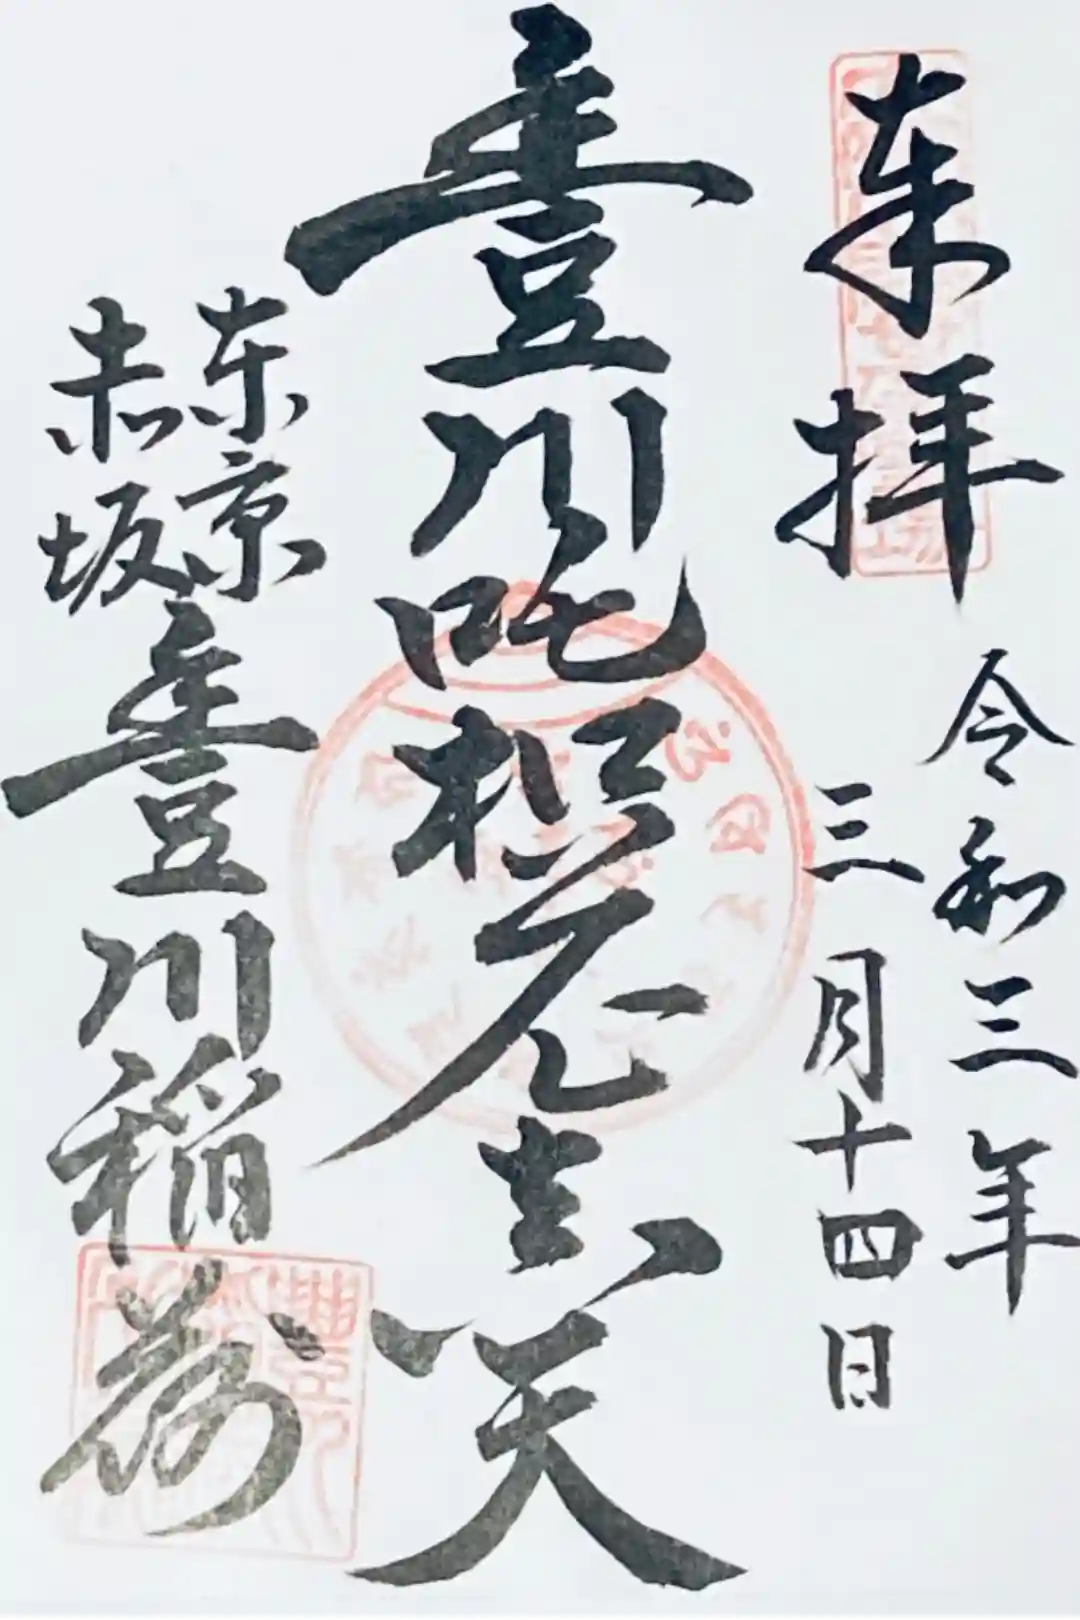 奉拝
令和三年
三月十四日
豊川吒枳尼眞天
東京
赤坂
豊川稲荷